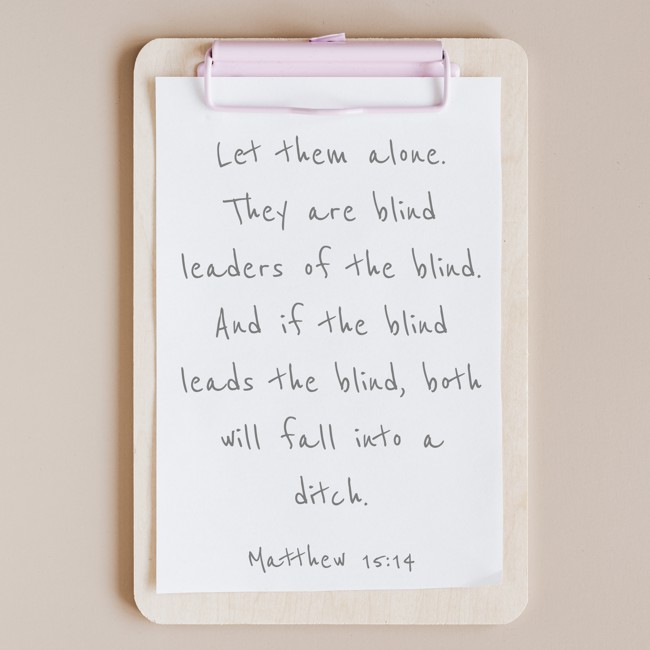 Let them alone.
They are blind
leaders of the blind.
And if the blind
leads the blind, both
will fall into a
ditch.
Matthew 15:14